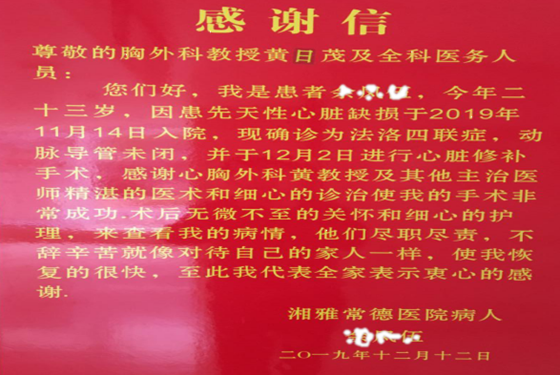 感谢信
尊敬的胸外科教授黄日茂及全科医务人
员：
您们好，我是患者，今年二
十三岁，因患先天性心脏缺损于2019年
11月14日入院，现确诊为法洛四联症，动
脉导管未闭，并于12月2日进行心脏修补
手术，感谢心胸外科黄教授及其他主治医
师精湛的医术和细心的诊治使我的手术非
常成功.术后无微不至的关怀和细心的护
理，来查看我的病情，他们尽职尽责，不
辞辛苦就像对待自己的家人一样，使我恢
复的很快，至此我代表全家表示衷心的感
谢.
湘雅常德医院病人
二〇一九年十二月十二日